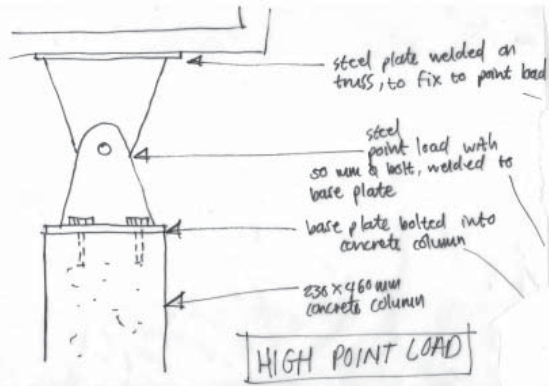 steel plate welded on
truss, to fix to point load
steel
point load with
50 mm ø bolt, welded to
base plate
base plate bolted into
concrete column
230 x 460 mm
concrete column
HIGH POINT LOAD